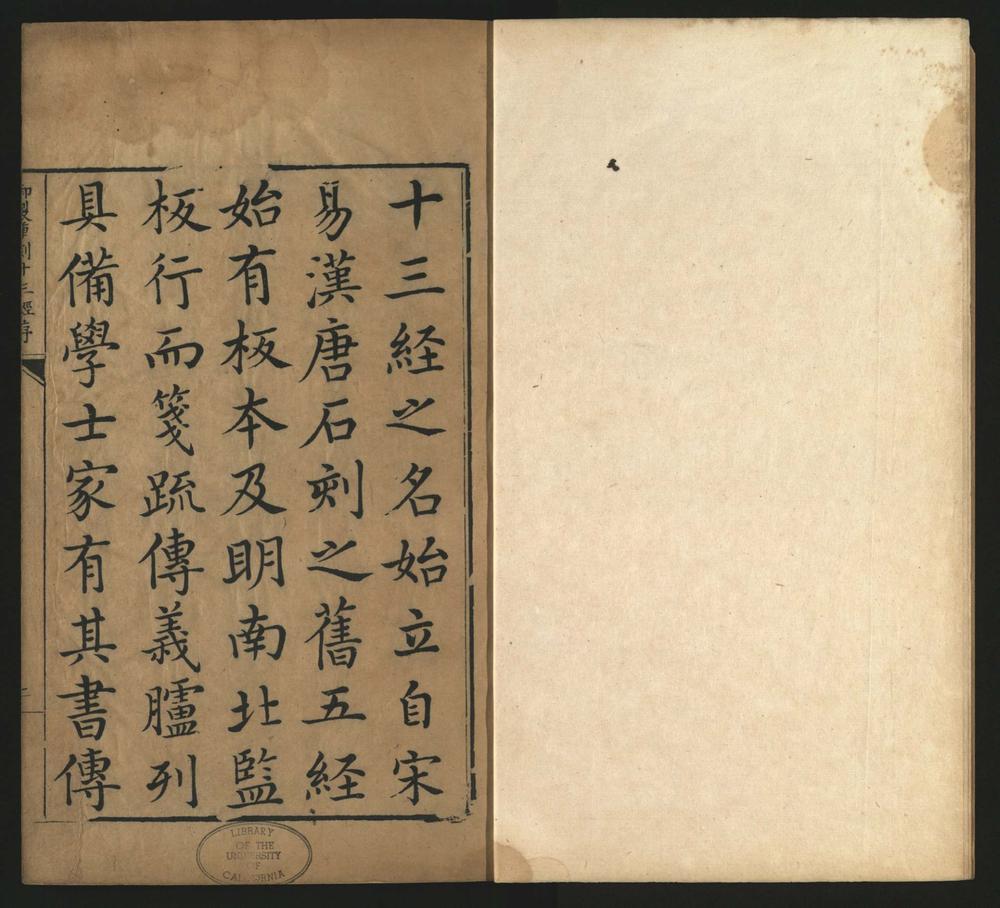 十三経之名始立自宋
易漢唐石刻之舊五経
始有板本及明南北監
板行而箋疏傳義臚列
具備學士家有其書傳
御製重刻十三經序
LIBRARY
OF THE
UNIVERSITY
OF
CALIFORNIA